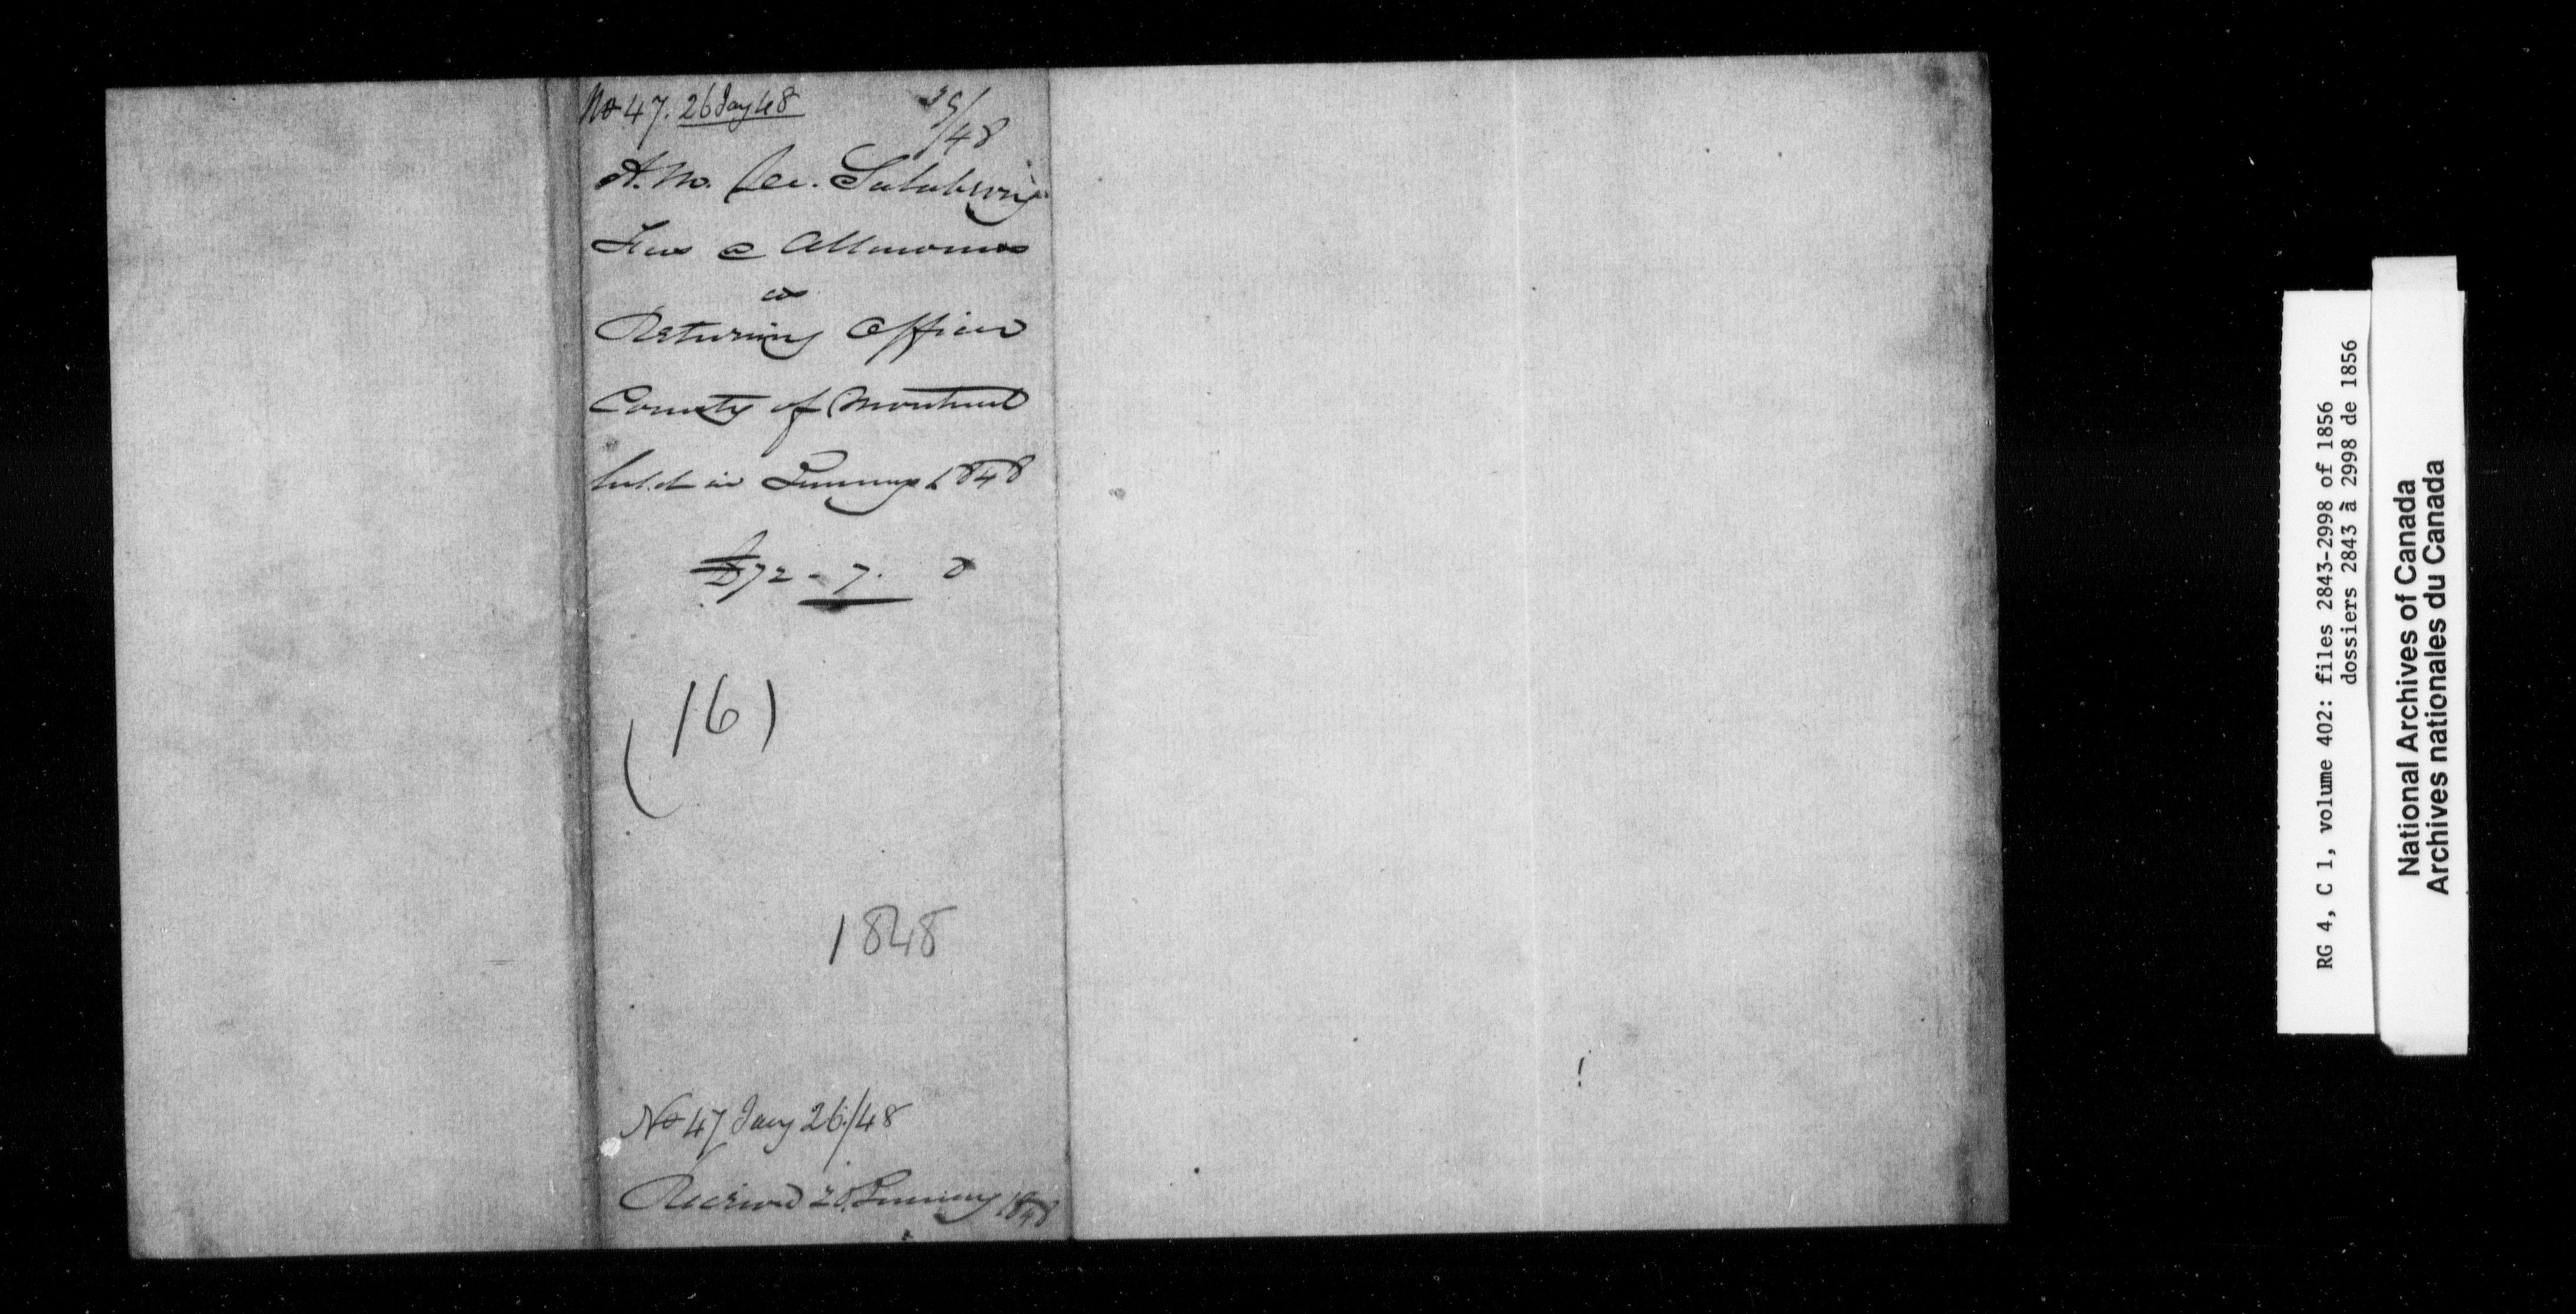 No 47. 26 Jany 48
/48
A. M. De. Salaberry
Fees & Allowances
as
Returning Officer
County of Montreal
held in January 1848
£72 - 7. 0
(16)
1848
No 47 Jany 26/48
Received 26 January 1848
RG 4, C 1, volume 402: files 2843-2998 of 1856
dossiers 2843 à 2998 de 1856
National Archives of Canada
Archives nationales du Canada